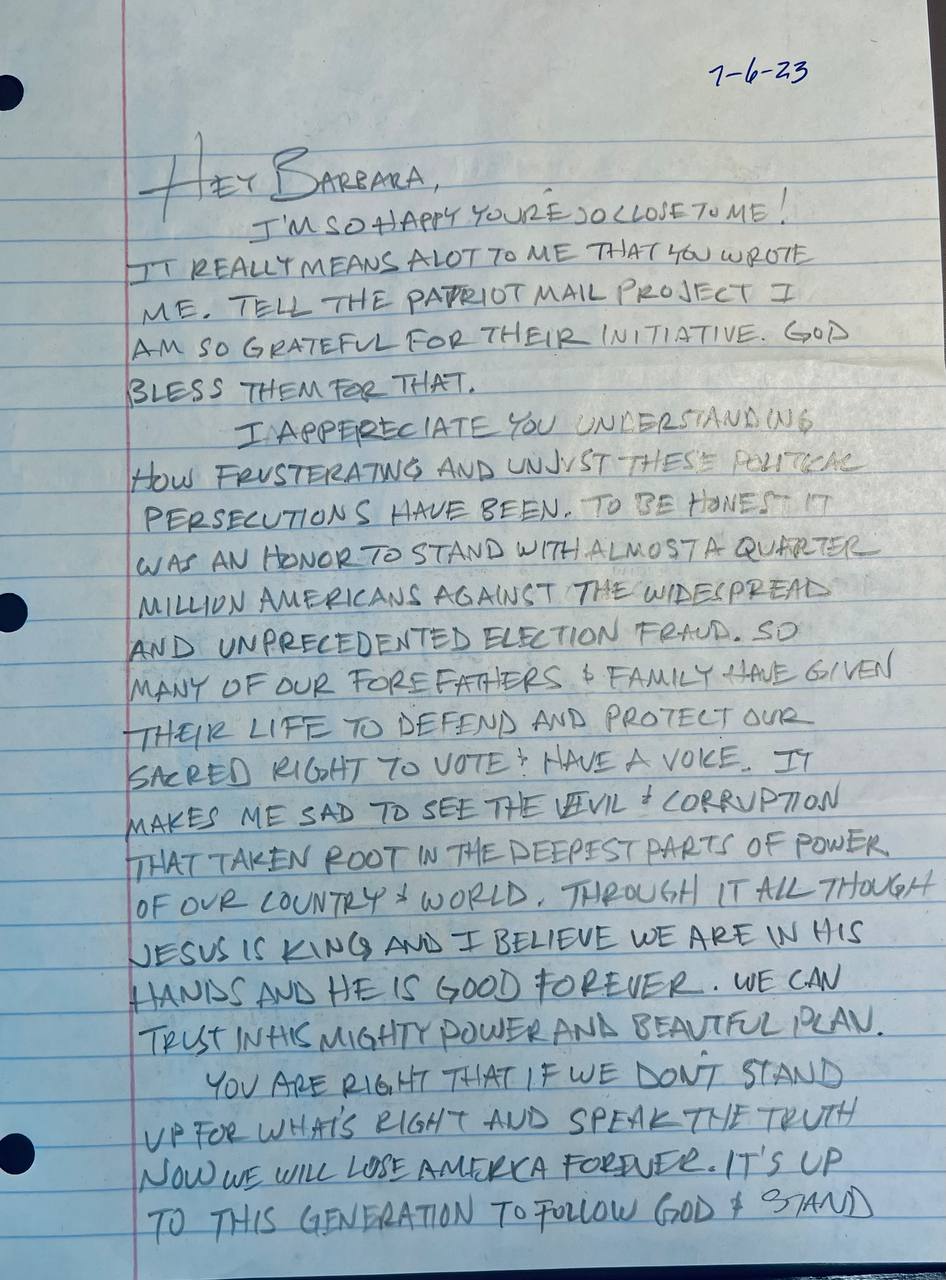 7-6-23
HEY BARBARA,
I'M SO HAPPY YOU'RE SO CLOSE TO ME!
IT REALLY MEANS ALOT TO ME THAT YOU WROTE
ME. TELL THE PATRIOT MAIL PROJECT I
AM SO GRATEFUL FOR THEIR INITIATIVE. GOD
BLESS THEM FOR THAT.
I APPERECIATE YOU UNDERSTANDING
HOW FRUSTERATING AND UNJUST THESE POLITICAL
PERSECUTIONS HAVE BEEN. TO BE HONEST IT
WAS AN HONOR TO STAND WITH ALMOST A QUARTER
MILLION AMERICANS AGAINST THE WIDESPREAD
AND UNPRECEDENTED ELECTION FRAUD. SO
MANY OF OUR FOREFATHERS & FAMILY HAVE GIVEN
THEIR LIFE TO DEFEND AND PROTECT OUR
SACRED RIGHT TO VOTE & HAVE A VOICE. IT
MAKES ME SAD TO SEE THE EVIL & CORRUPTION
THAT TAKEN ROOT IN THE DEEPEST PARTS OF POWER
OF OUR COUNTRY & WORLD. THROUGH IT ALL THOUGH
JESUS IS KING AND I BELIEVE WE ARE IN HIS
HANDS AND HE IS GOOD FOREVER. WE CAN
TRUST IN HIS MIGHTY POWER AND BEAUTFUL PLAN.
YOU ARE RIGHT THAT IF WE DON'T STAND
UP FOR WHAT'S RIGHT AND SPEAK THE TRUTH
NOW WE WILL LOSE AMERCA FOREVER. IT'S UP
TO THIS GENERATION TO FOLLOW GOD & STAND